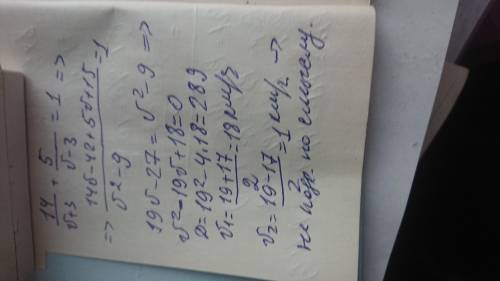 14/(v+3) + 5/(v-3) = 1 =>
=> (14v-42+5v+15)/(v²-9) = 1
19v-27 = v²-9 =>
v²-19v+18=0
D=19²-4·18=289
v₁=(19+17)/2=18 км/ч
v₂=(19-17)/2=1 км/ч →
не подх. по смыслу.